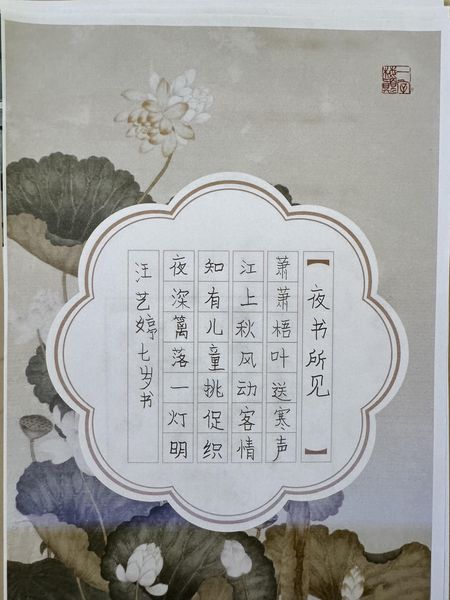 【夜书所见】
萧萧梧叶送寒声
江上秋风动客情
知有儿童挑促织
夜深篱落一灯明
汪艺婷七岁书